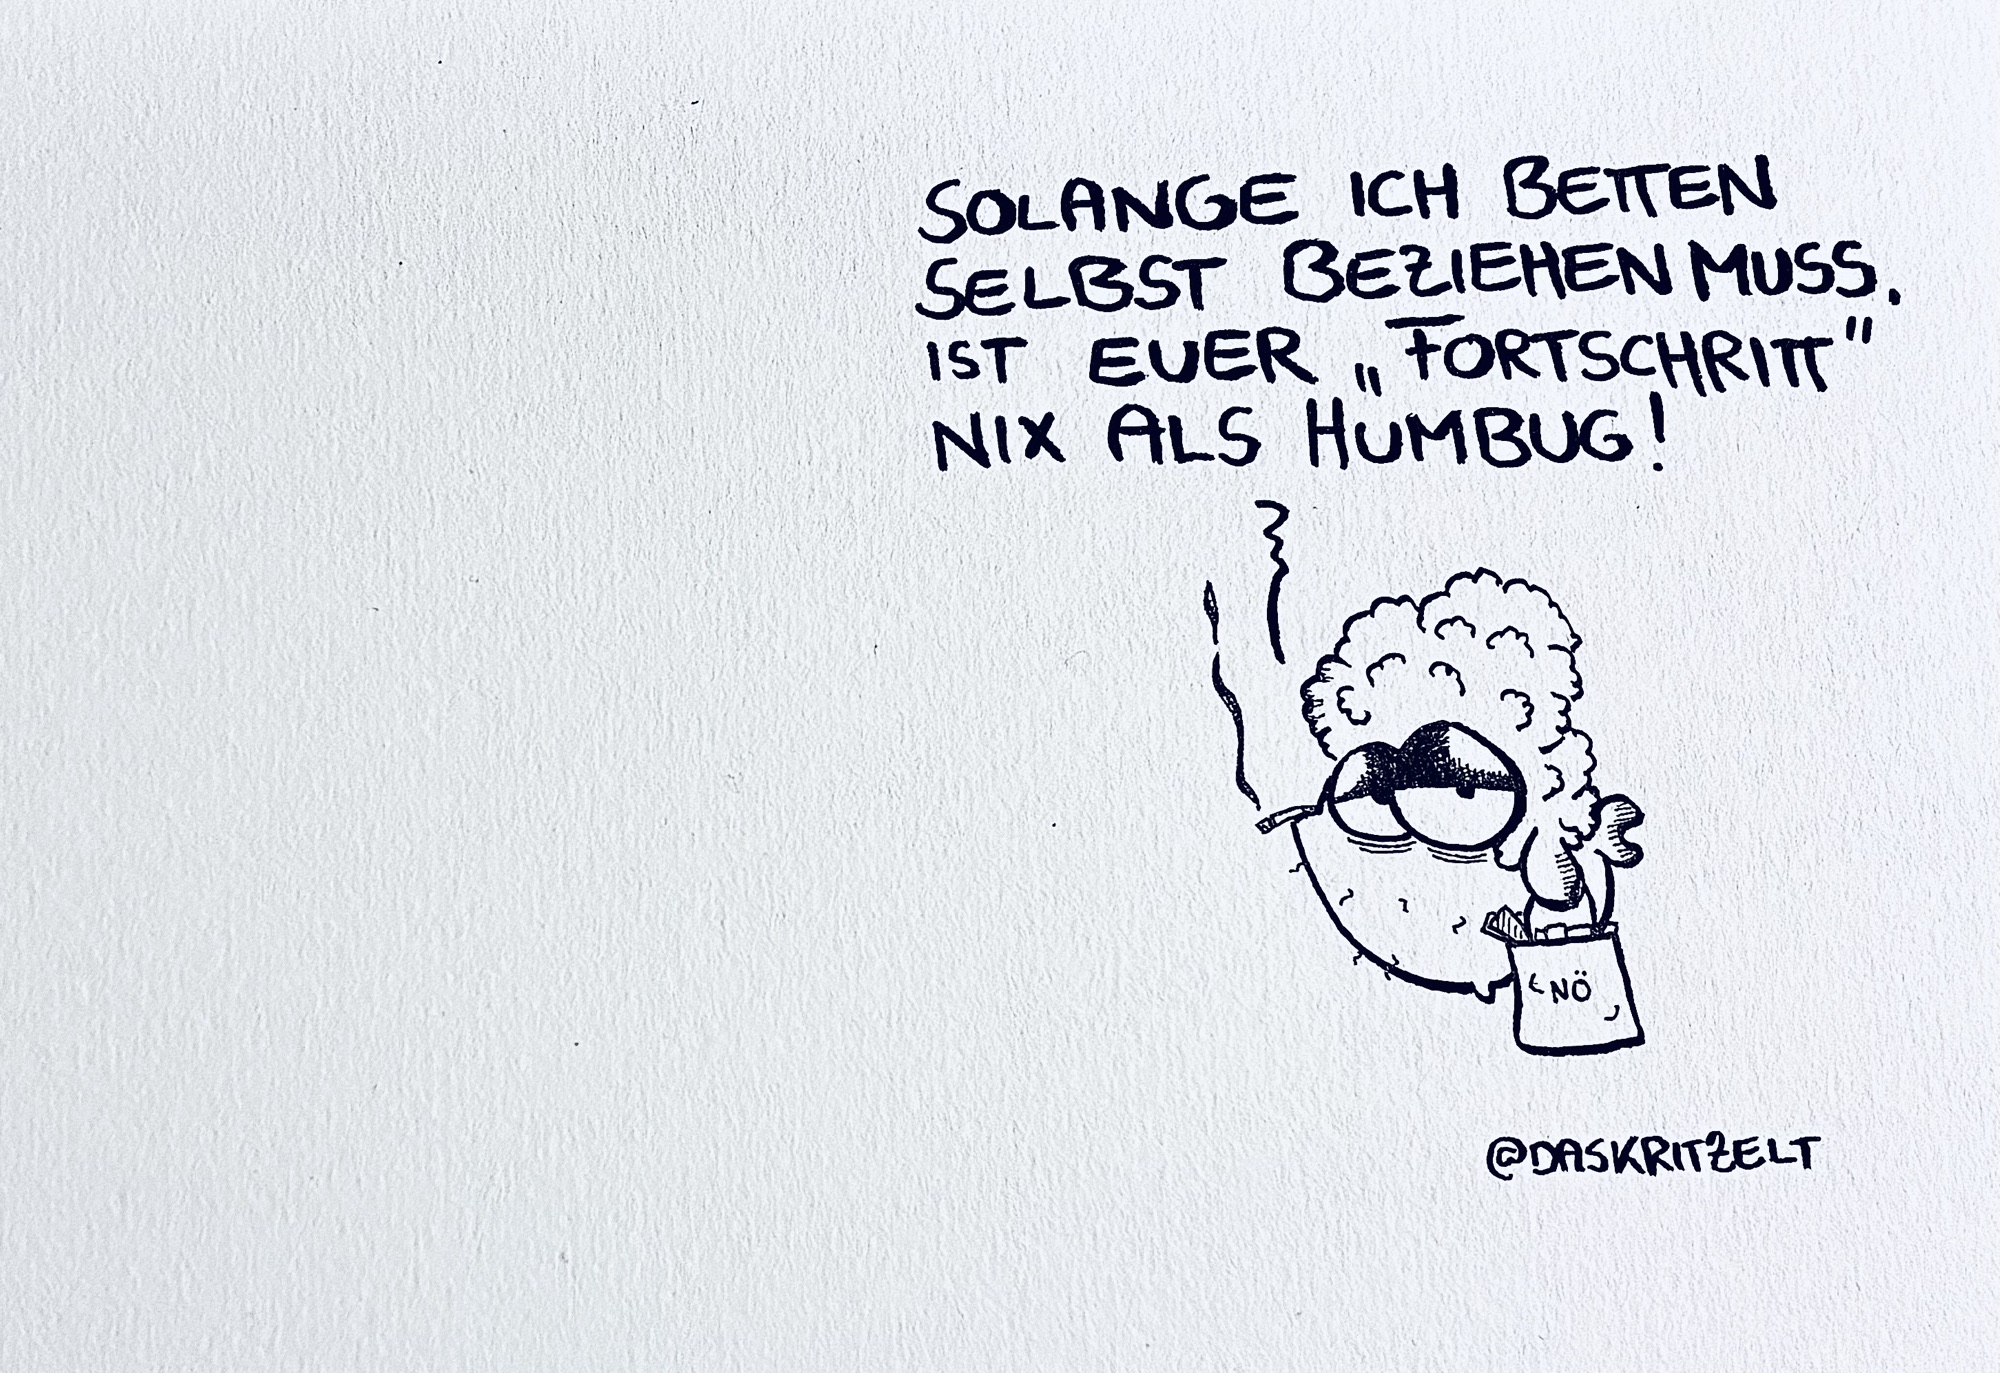 SOLANGE ICH BETTEN
SELBST BEZIEHEN MUSS,
IST EUER „FORTSCHRITT“
NIX ALS HUMBUG!
NÖ
@DASKRITZELT